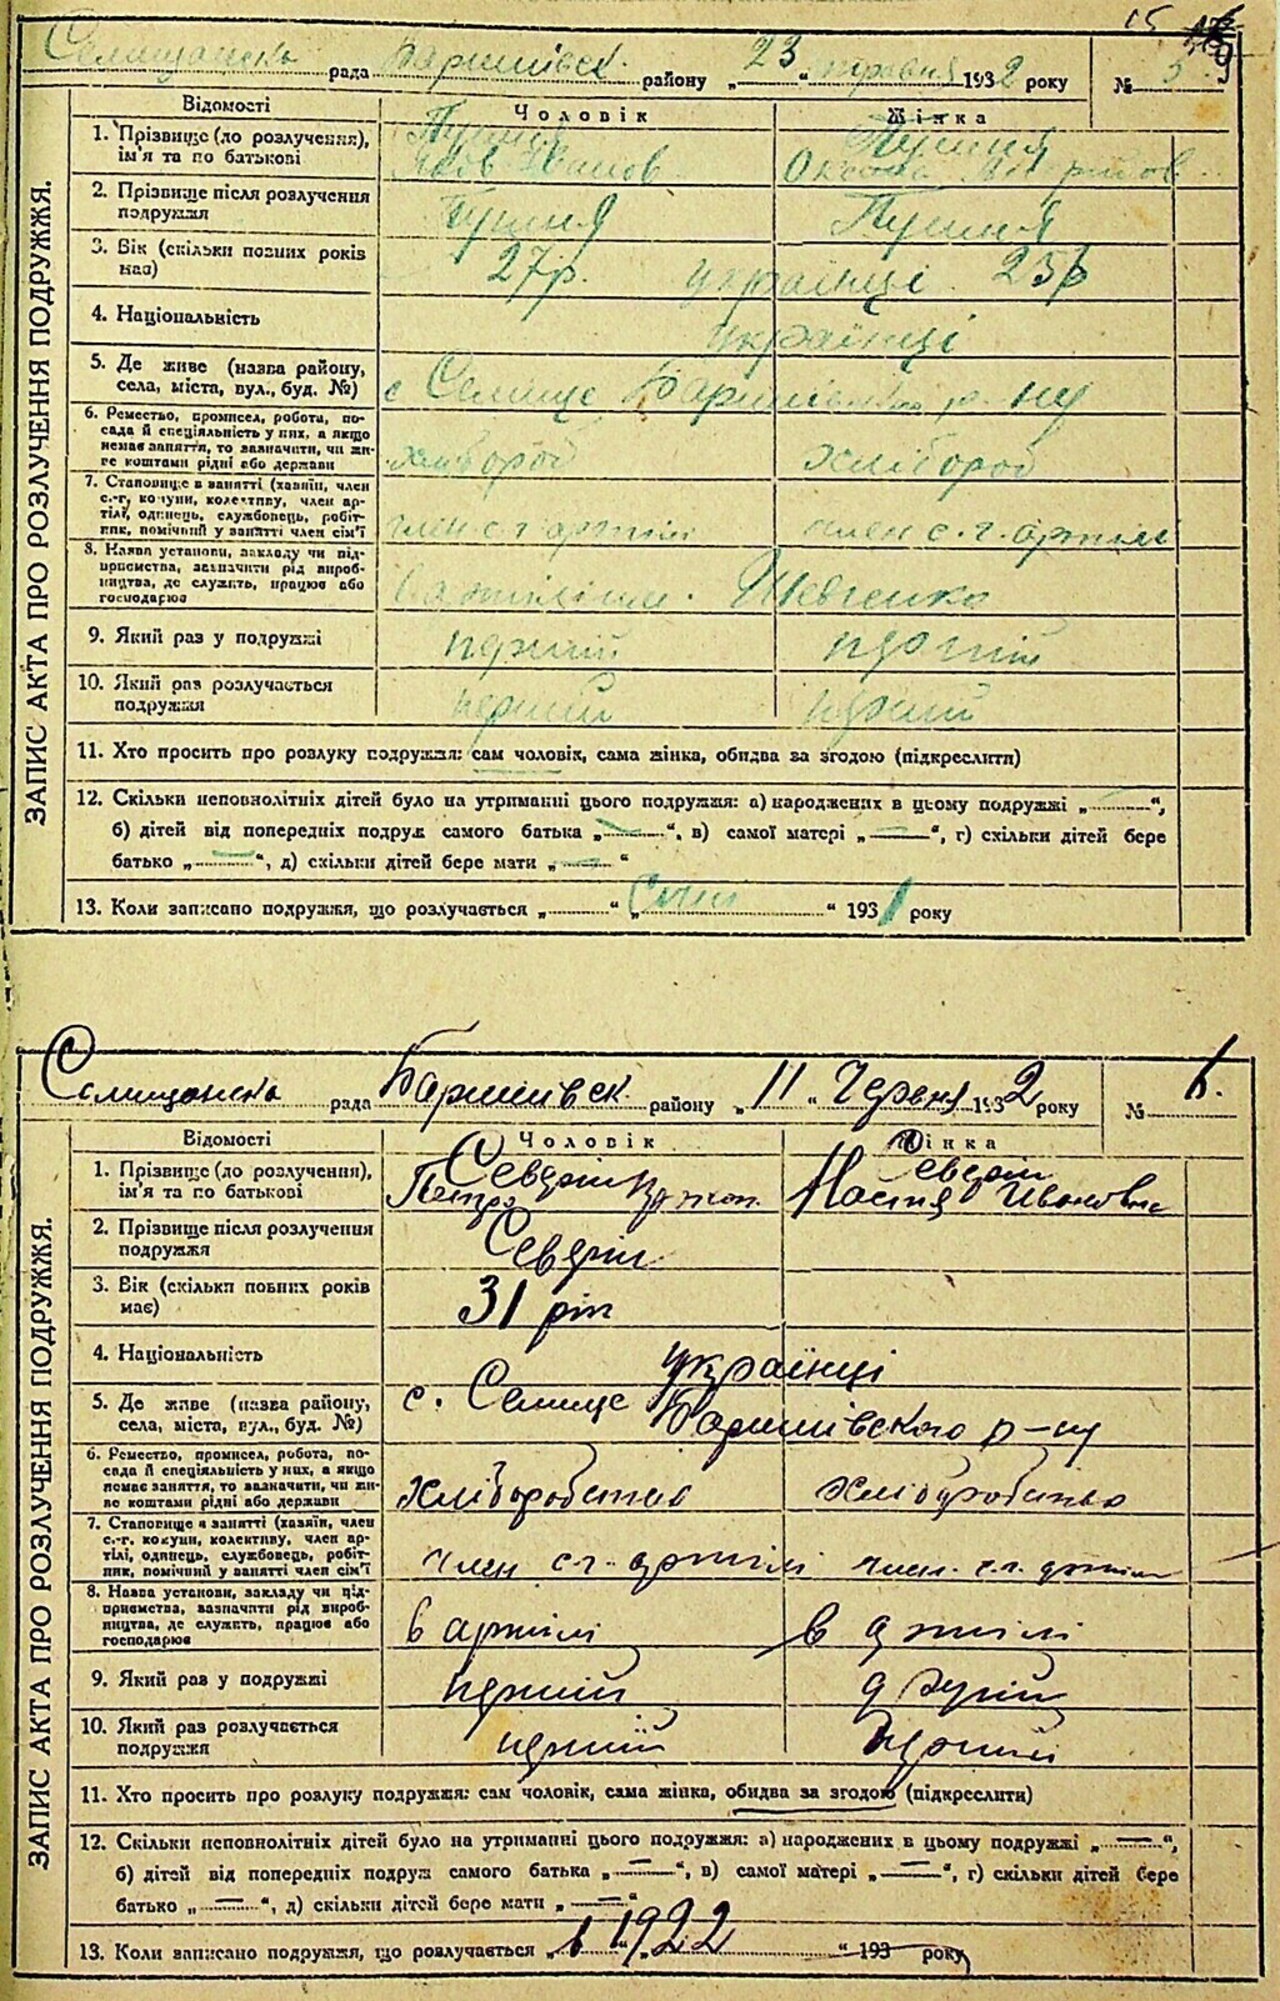 15
Селищанська рада Баришівськ. району „23“ травня 1932 року № 5
ЗАПИС АКТА ПРО РОЗЛУЧЕННЯ ПОДРУЖЖЯ.
Відомості Чоловік Жінка
1. Прізвище (до розлучення), ім'я та по батькові
Яков Иванов Оксана
2. Прізвище після розлучення подружжя
3. Вік (скільки повних років має) 27р. українці 25р
4. Національність українці
5. Де живе (назва району, села, міста, вул., буд. №) с Селище Баришівсько р-ну
6. Ремество, промисел, робота, посада й спеціяльність у них, а якщо немає заняття, то зазначити, чи живе коштами рідні або держави хлібороб хлібороб
7. Становище в занятті (хазяїн, член с.-г. комуни, колективу, член артілі, одинець, службовець, робітник, помічний у занятті член сім'ї член с г артілі член с. г. артілі
8. Назва установи, закладу чи підприємства, зазначити рід виробництва, де служить, працює або господарює в артілі ім. Шевченко
9. Який раз у подружжі перший перший
10. Який раз розлучається подружжя перший перший
11. Хто просить про розлуку подружжя: сам чоловік, сама жінка, обидва за згодою (підкреслити)
12. Скільки неповнолітніх дітей було на утриманні цього подружжя: а) народжених в цьому подружжі „—“,
б) дітей від попередніх подруж самого батька „—“, в) самої матері „—“, г) скільки дітей бере
батько „—“, д) скільки дітей бере мати „—“
13. Коли записано подружжя, що розлучається „ “ „ “ 1931 року
Селищанська рада Баришівськ. району „11“ Червня 1932 року №
ЗАПИС АКТА ПРО РОЗЛУЧЕННЯ ПОДРУЖЖЯ.
Відомості Чоловік Жінка
1. Прізвище (до розлучення), ім'я та по батькові
Петро Настя Ивановна
2. Прізвище після розлучення подружжя
3. Вік (скільки повних років має) 31 рік
4. Національність українці
5. Де живе (назва району, села, міста, вул., буд. №) с. Селище Баришівского р-ну
6. Ремество, промисел, робота, посада й спеціяльність у них, а якщо немає заняття, то зазначити, чи живе коштами рідні або держави хліборобство хліборобство
7. Становище в занятті (хазяїн, член с.-г. комуни, колективу, член артілі, одинець, службовець, робітник, помічний у занятті член сім'ї член с-г. артілі член. с.г. артілі
8. Назва установи, закладу чи підприємства, зазначити рід виробництва, де служить, працює або господарює в артілі в артілі
9. Який раз у подружжі перший другий
10. Який раз розлучається подружжя перший перший
11. Хто просить про розлуку подружжя: сам чоловік, сама жінка, обидва за згодою (підкреслити)
12. Скільки неповнолітніх дітей було на утриманні цього подружжя: а) народжених в цьому подружжі „—“,
б) дітей від попередніх подруж самого батька „—“, в) самої матері „—“, г) скільки дітей бере
батько „—“, д) скільки дітей бере мати „—“
13. Коли записано подружжя, що розлучається „ “ 1922 “ 193 року